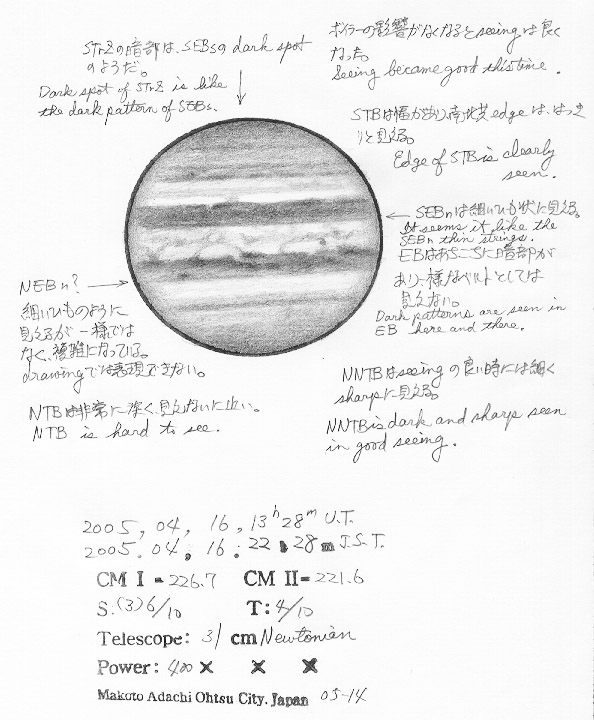 STrZの暗部は、SEBsの dark spot
のようだ。
Dark spot of STrZ is like
the dark pattern of SEBs.
ボイラーの影響がなくなるとseeingは良く
なった。
Seeing became good this time.
STBは幅があり、南 edgeは、はっき
りと見える。
Edge of STB is clearly
seen.
SEBnは細いひも状に見える。
It seems it like the
SEBn thin strings.
EBはあちこちに暗部が
あり一様なベルトとしては
見えない。
Dark patterns are seen in
EB here and there.
NEBn?
細いひものように
見えるが一様では
なく、複雑になっている。
drawingでは表現できない。
NTBは非常に淡く、見えないに近い。
NTB is hard to see.
NNTBはseeingの良い時には細く
sharpに見える。
NNTB is dark and sharp seen
in good seeing.
2005, 04, 16, 13h 28m U.T.
2005.04, 16: 22 28m J.S.T.
CM I = 226.7 CM II = 221.6
S:(3)6/10 T: 4/10
Telescope: 31 cm Newtonian
Power: 400 × × ×
Makoto Adachi Ohtsu City. Japan 05-14